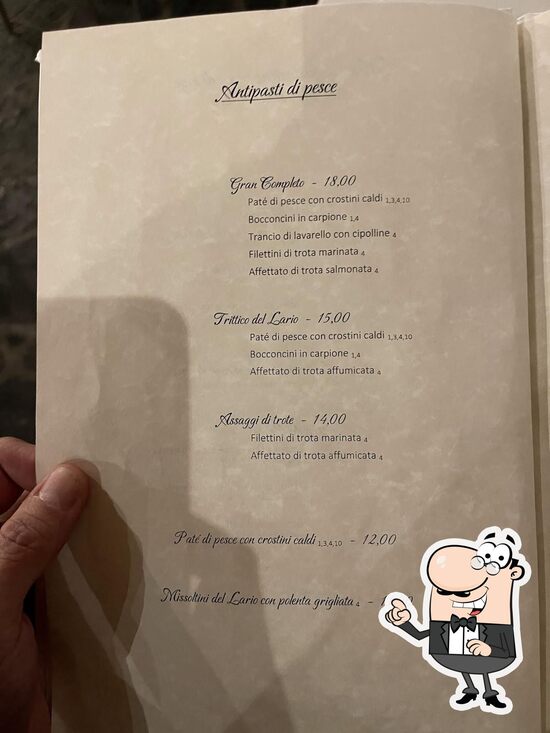 Antipasti di pesce
Gran Completo - 18,00
Paté di pesce con crostini caldi 1,3,4,10
Bocconcini in carpione 1,4
Trancio di lavarello con cipolline 4
Filettini di trota marinata 4
Affettato di trota salmonata 4
Trittico del Lario - 15,00
Paté di pesce con crostini caldi 1,3,4,10
Bocconcini in carpione 1,4
Affettato di trota affumicata 4
Assaggi di trote - 14,00
Filettini di trota marinata 4
Affettato di trota affumicata 4
Paté di pesce con crostini caldi 1,3,4,10 - 12,00
Missoltini del Lario con polenta grigliata 4 -